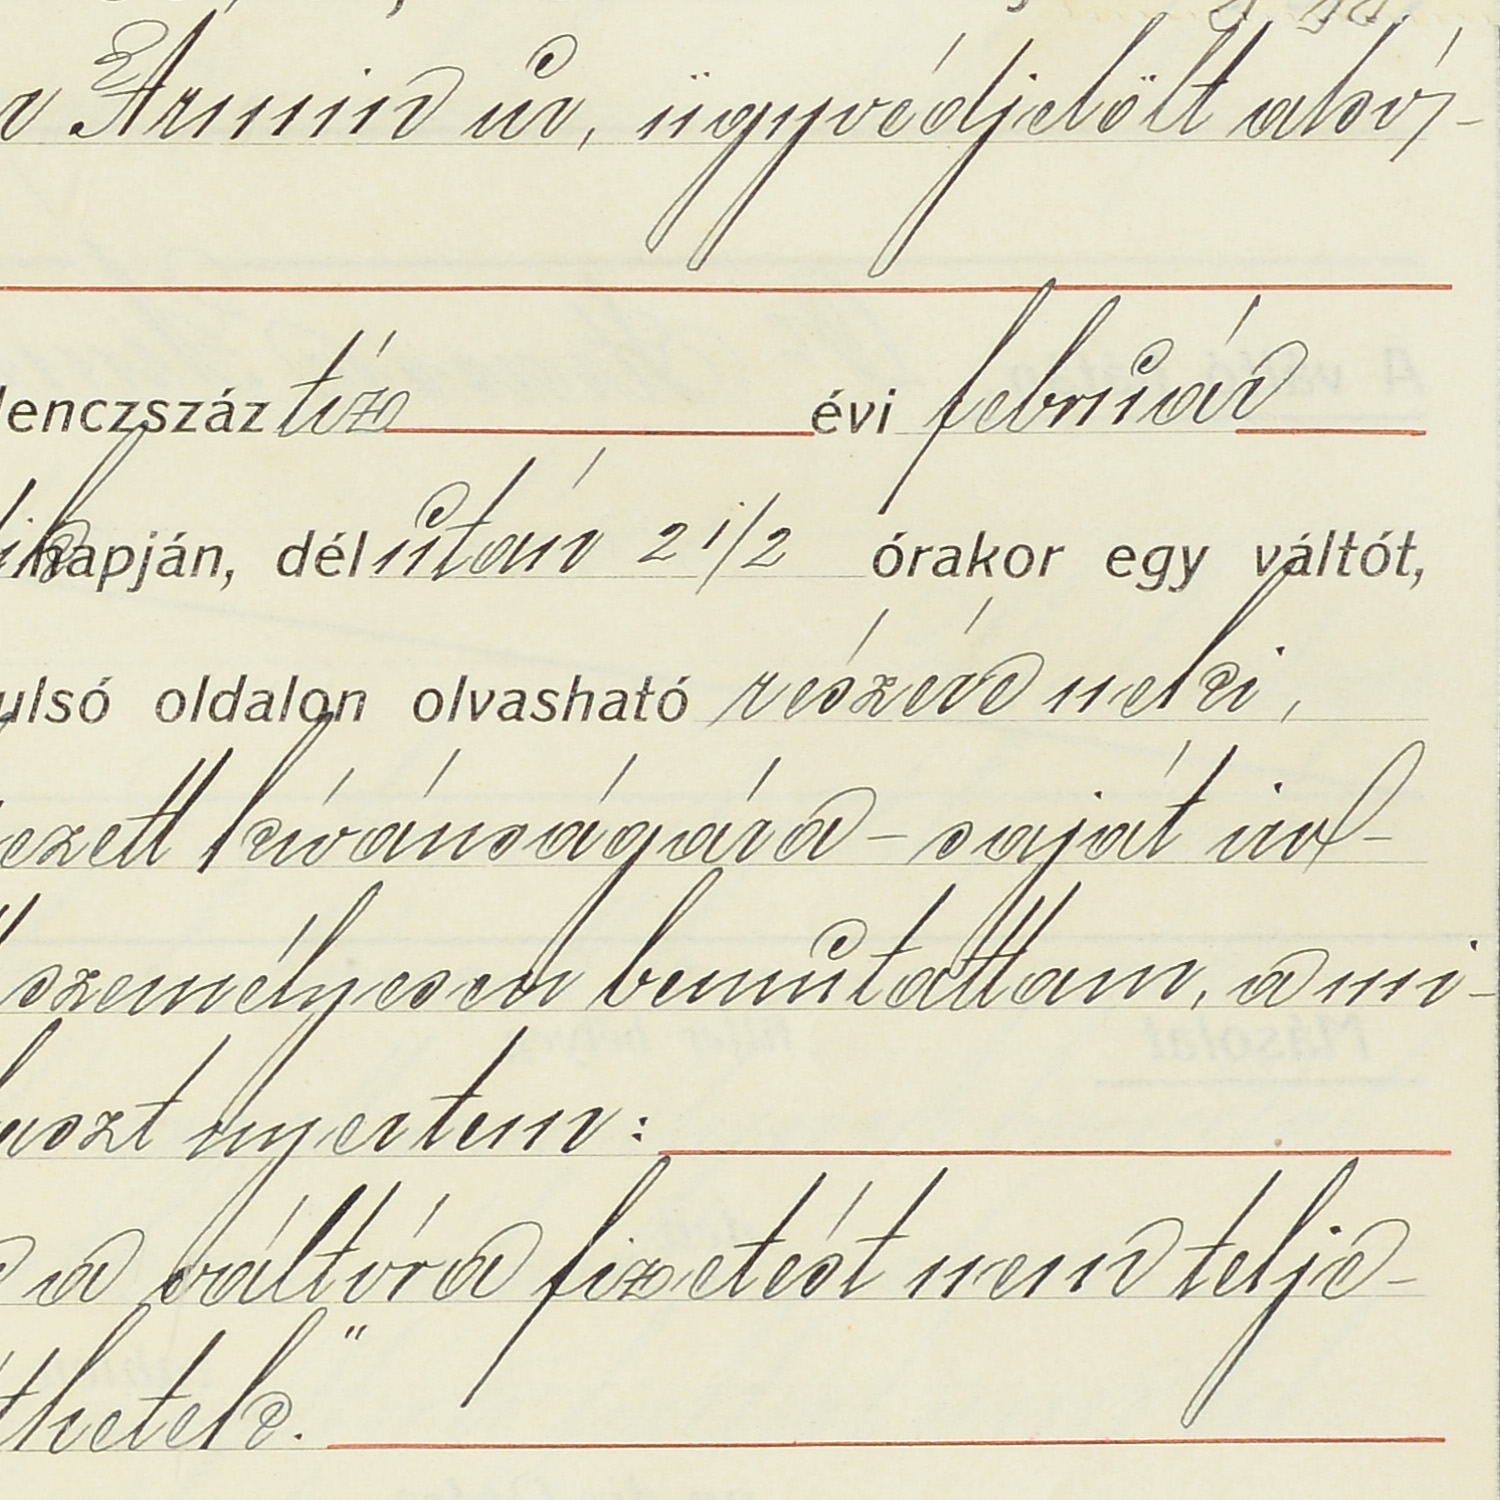 r Ármin úr, ügyvédjelölt akör-
lenczszáz tíz évi február
ik napján, délután 2 1/2 órakor egy váltót,
ulsó oldalon olvasható részére neki,
ezett kívánságára - saját üzl-
személyesen bemutattam, a mi-
laszt nyertem:
a váltóra fizetést nem telje-
thetek."